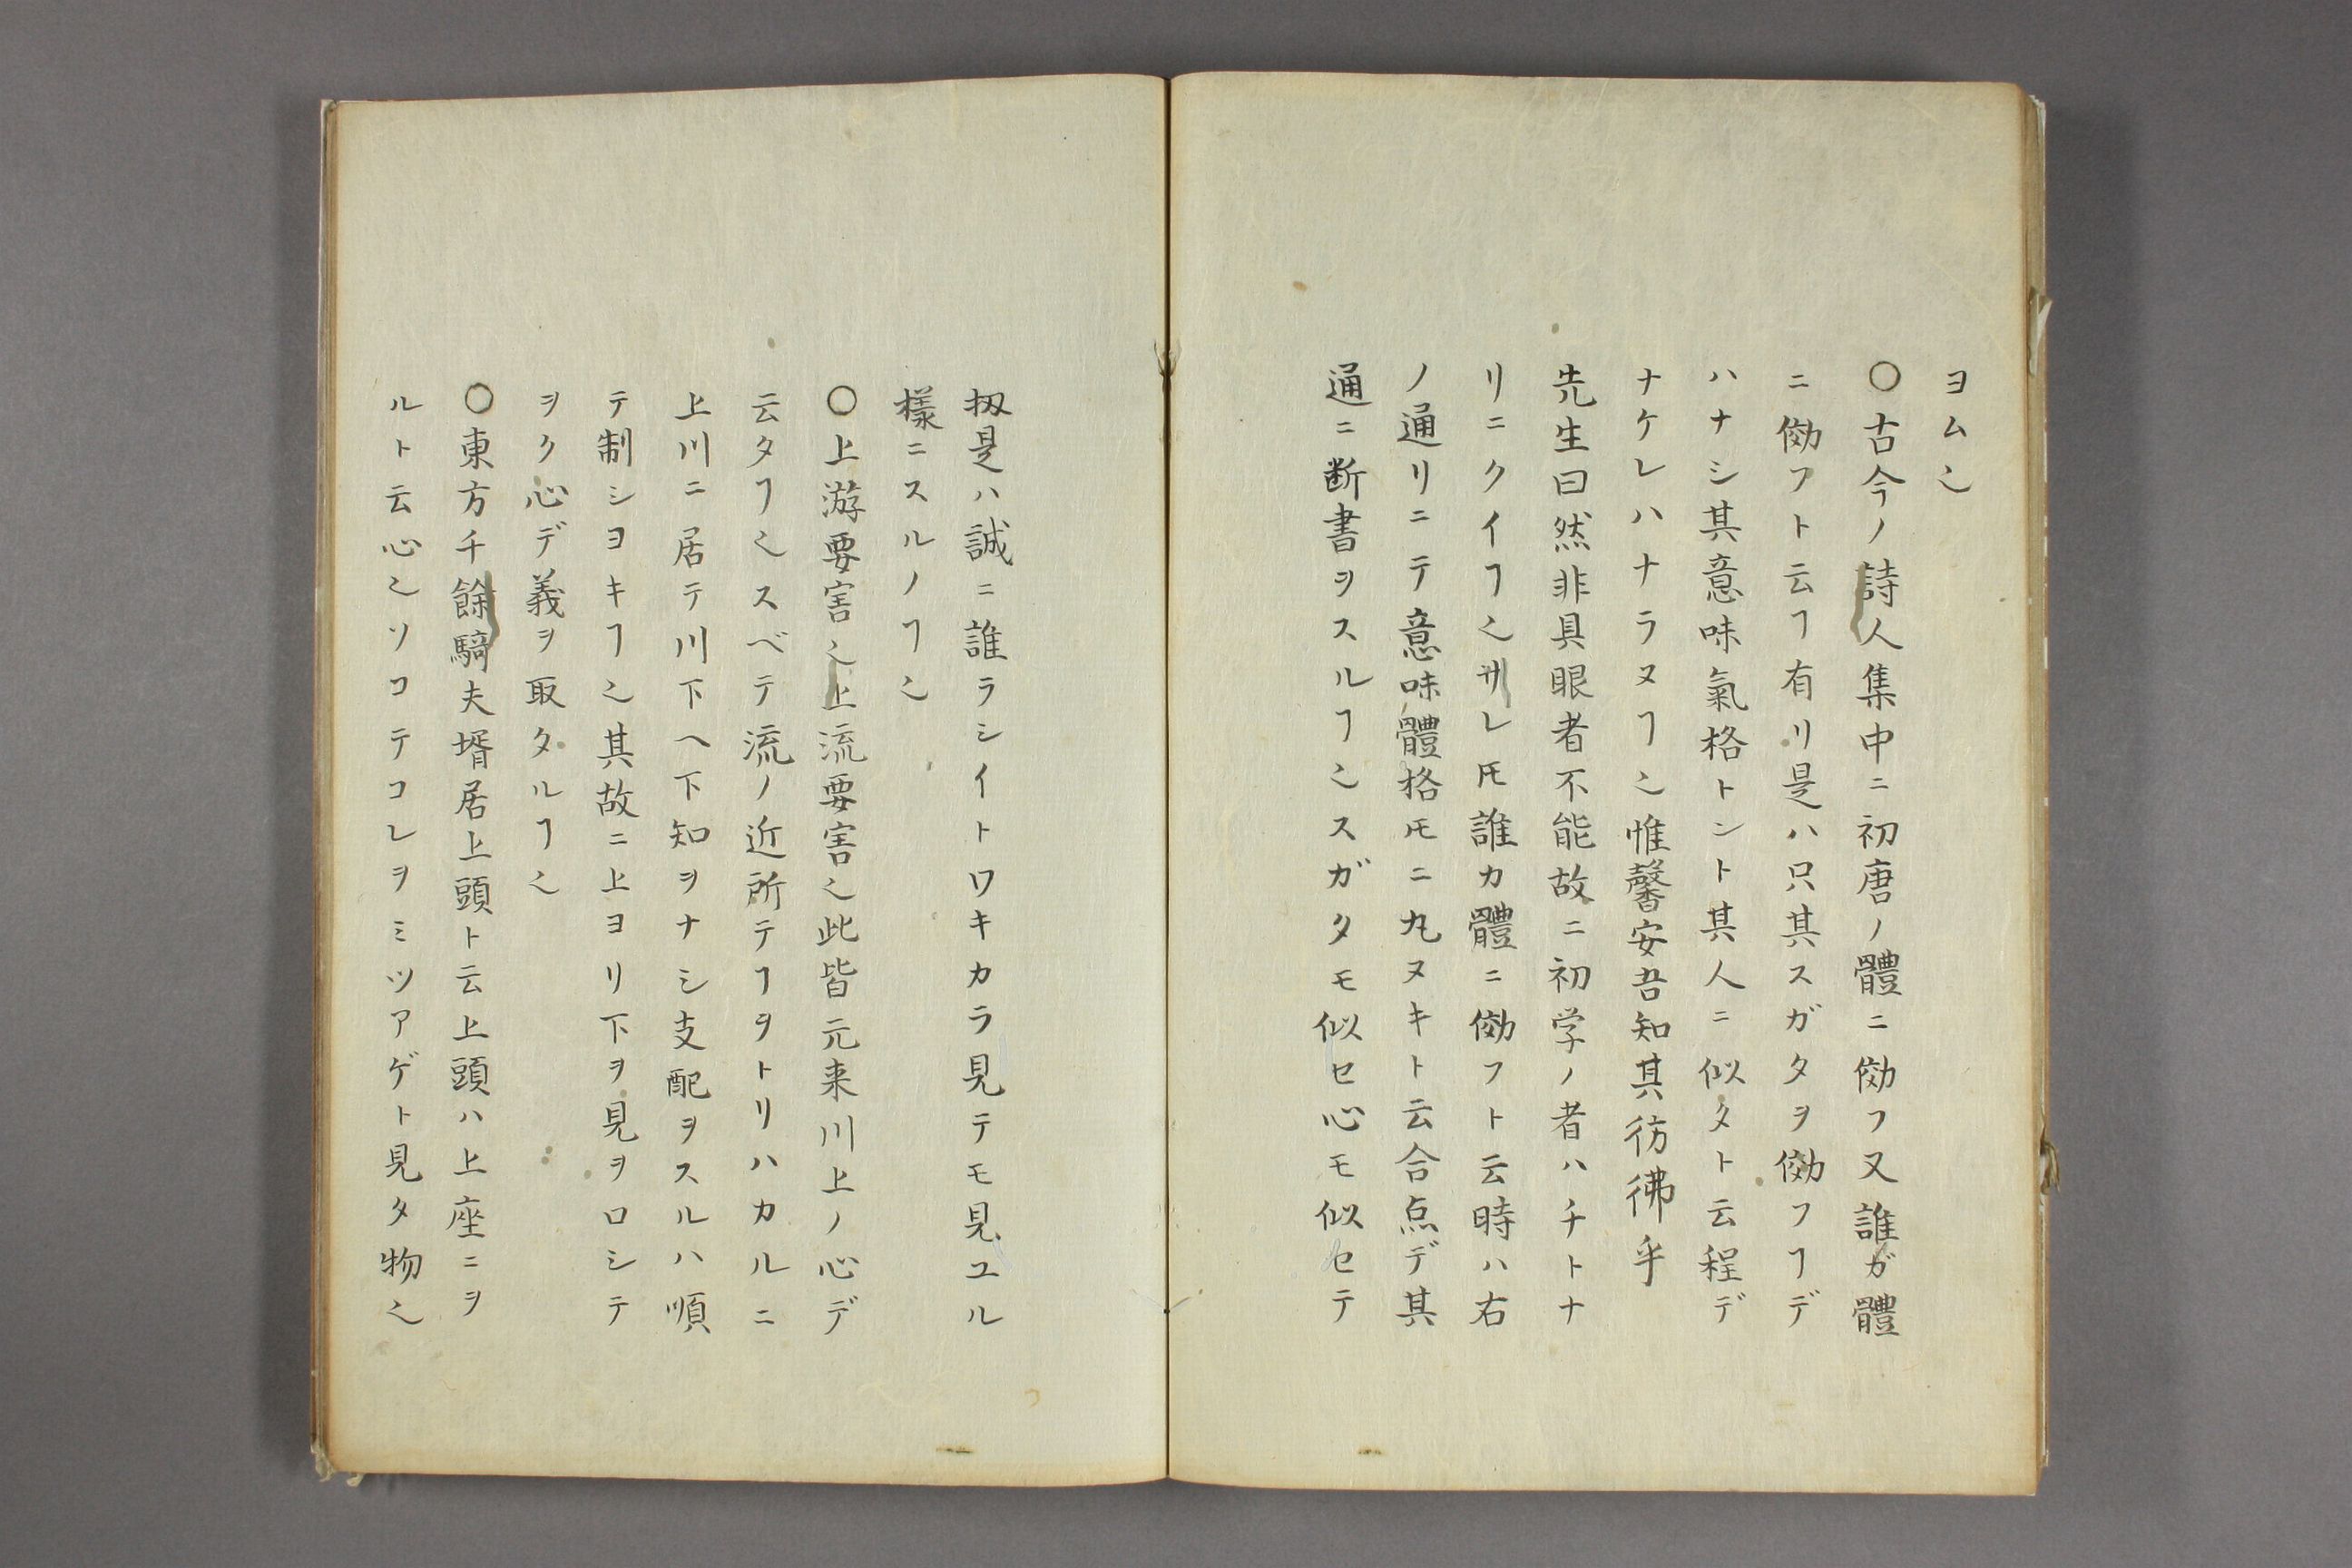 ヨム𪜈
○古今ノ詩人集中ニ初唐ノ體ニ傚フ又誰ガ體
ニ傚フト云ヿ有リ是ハ只其スガタヲ傚フヿデ
ハナシ其意味氣格トント其人ニ似タト云程デ
ナケレハナラヌヿ乀惟馨安吾知其彷彿乎
先生曰然非具眼者不能故ニ初学ノ者ハチトナ
リニクイヿ乀サレ𪜈誰カ體ニ傚フト云時ハ右
ノ通リニテ意味體格𪜈ニ丸ヌキト云合点デ其
通ニ断書ヲスルヿ乀スガタモ似セ心モ似セテ
扨是ハ誠ニ誰ラシイトワキカラ見テモ見ユル
樣ニスルノヿ乀
○上游要害乀上流要害乀此皆元来川上ノ心デ
云タヿ乀スベテ流ノ近所テヿヲトリハカルニ
上川ニ居テ川下ヘ下知ヲナシ支配ヲスルハ順
テ制シヨキヿ乀其故ニ上ヨリ下ヲ見ヲロシテ
ヲク心デ義ヲ取タルヿ乀
○東方千餘騎夫壻居上頭ト云上頭ハ上座ニヲ
ルト云心乀ソコテコレヲミツアゲト見タ物乀